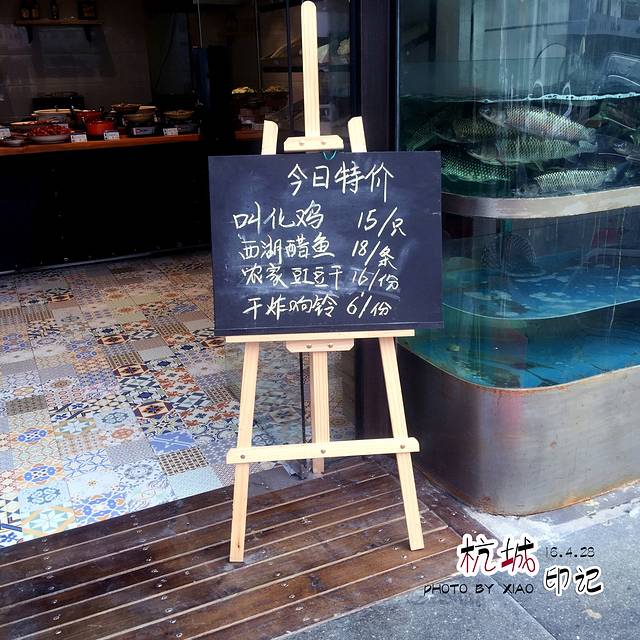 今日特价
叫化鸡 15/只
西湖醋鱼 18/条
农家豇豆干 16/份
干炸响铃 6/份
杭城 16.4.28
PHOTO BY XIAO 印记